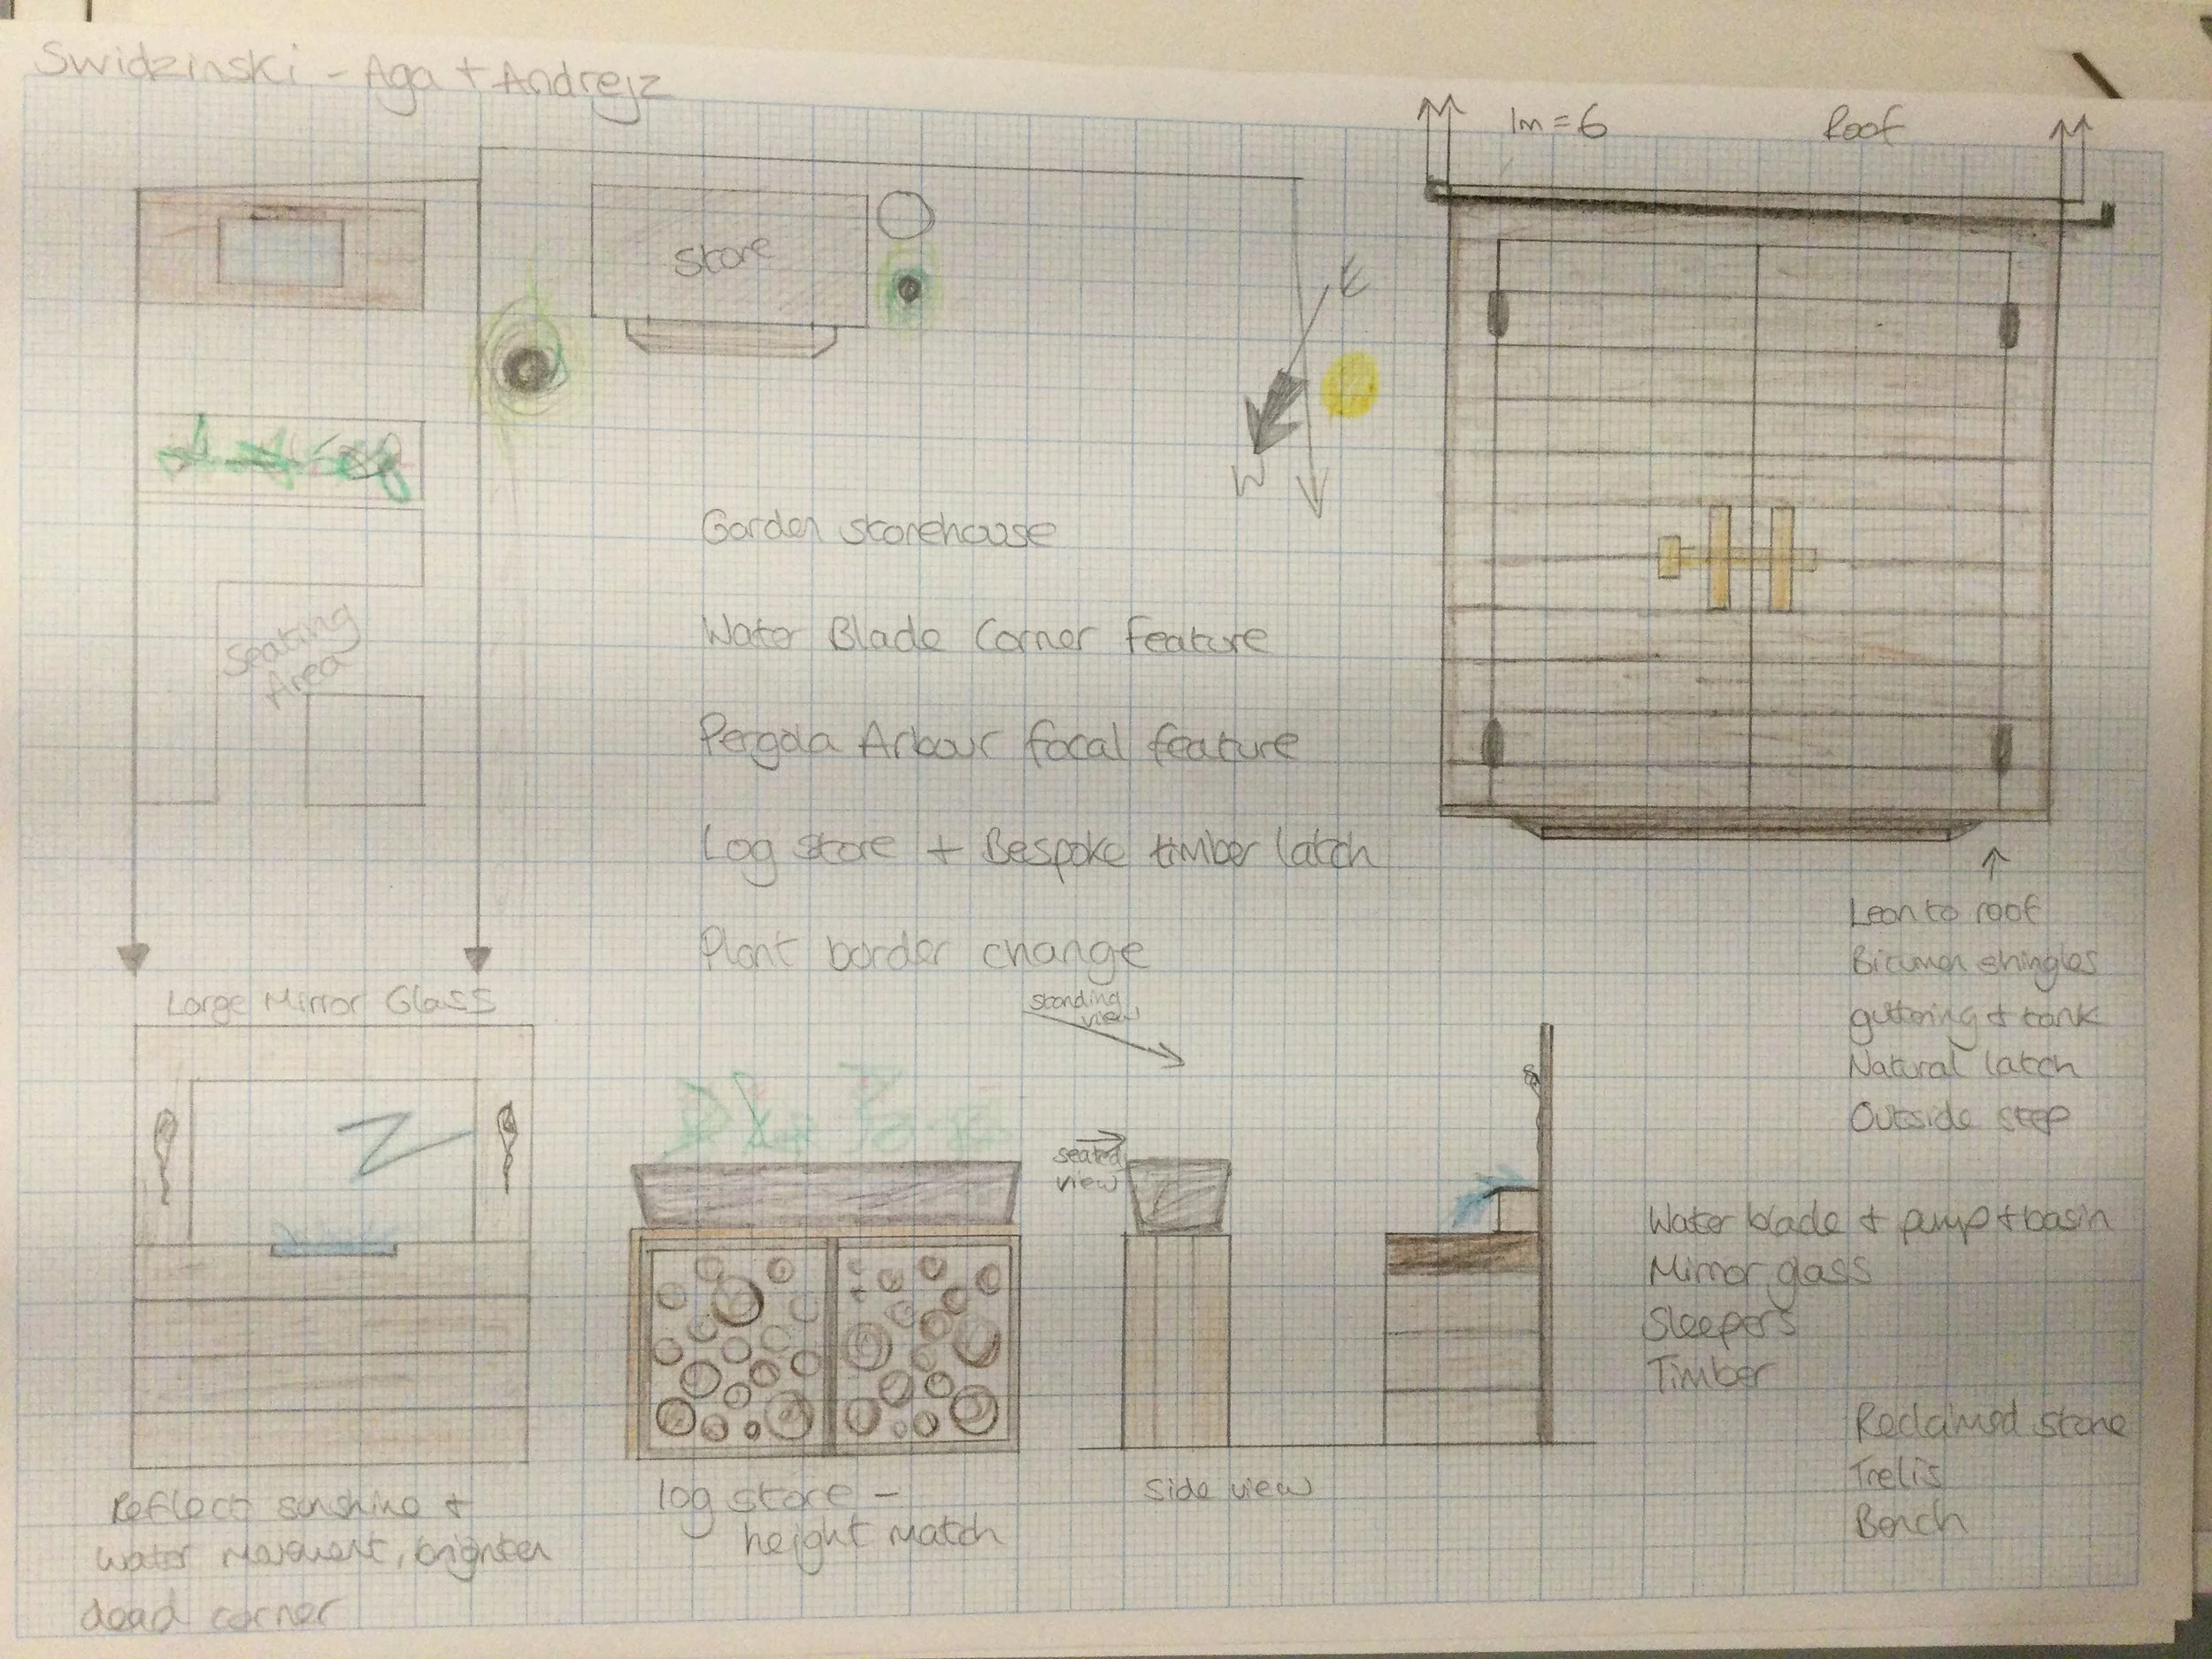 Swidzinski - Aga + Andrejz
1m = 6
Roof
Store
E
W
Seating
Area
Garden storehouse
Water Blade Corner feature
Pergola Arbour focal feature
Log store + Bespoke timber latch
Plant border change
Lean to roof
Bitumen shingles
guttering + tank
Natural latch
Outside step
Large Mirror Glass
standing
view
seated
view
Water blade + pump + basin
Mirror glass
Sleepers
Timber
Reclaimed stone
Trelis
Bench
Reflect sunshine +
water movement, brighten
dead corner
log store -
height match
Side view